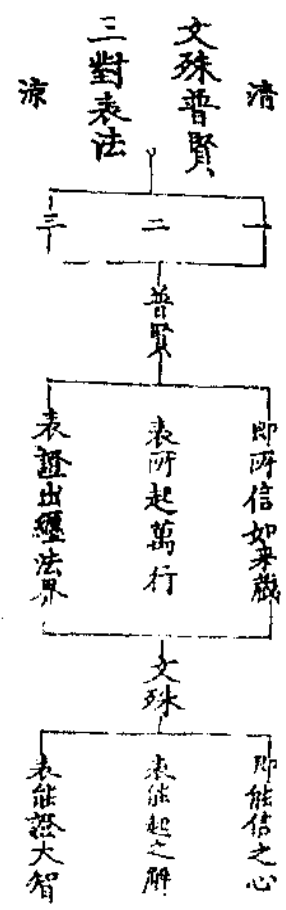 清
文殊普賢
三對表法
涼
一
二
三
普賢
即所信如来藏
表所起萬行
表證出纏法界
文殊
即能信之心
表能起之解
表能證大智